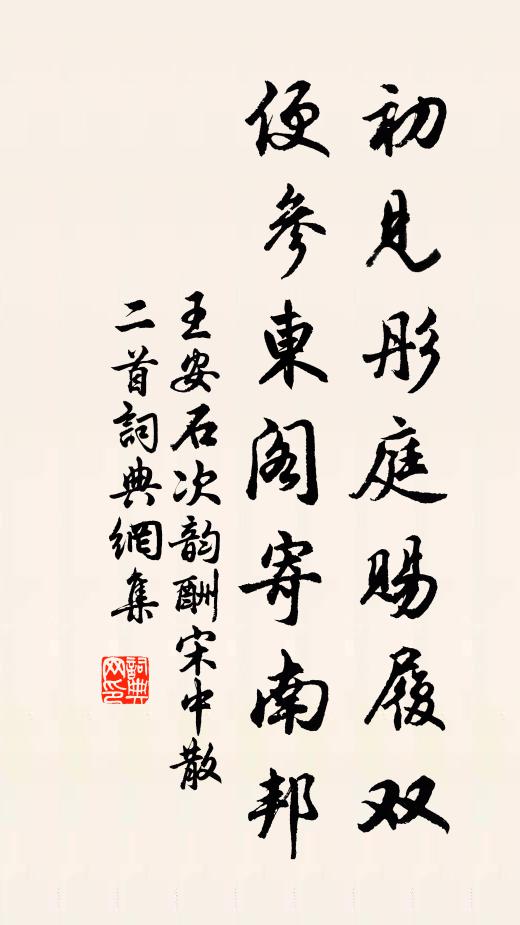 初見彤庭賜履双
便參東阁寄南邦
王安石次韵酬宋中散
二首詞典網集
詞典网印